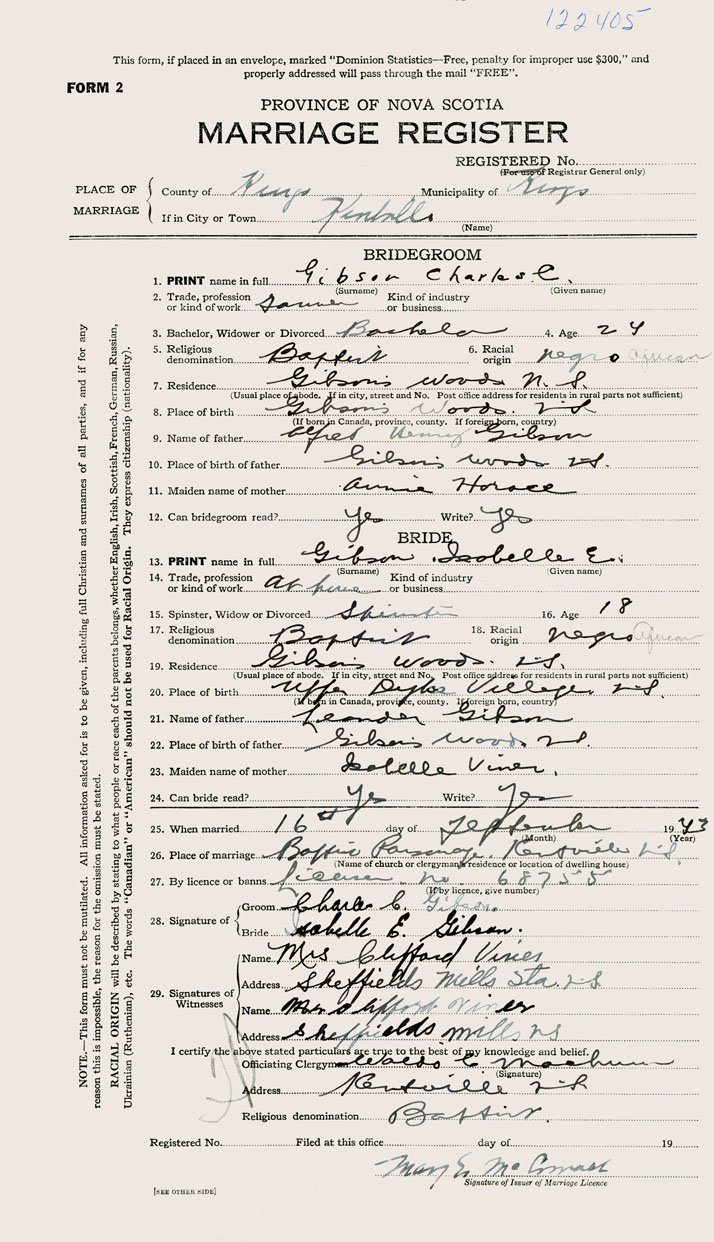 122405
This form, if placed in an envelope, marked "Dominion Statistics—Free, penalty for improper use $300," and
properly addressed will pass through the mail "FREE".
FORM 2
PROVINCE OF NOVA SCOTIA
MARRIAGE REGISTER
REGISTERED No.
(For use of Registrar General only)
PLACE OF MARRIAGE
County of Kings Municipality of Kings
If in City or Town
(Name)
BRIDEGROOM
1. PRINT name in full Gibson Charles C.
(Surname) (Given name)
2. Trade, profession or kind of work Kind of industry or business
3. Bachelor, Widower or Divorced Bachelor 4. Age 24
5. Religious denomination Baptist 6. Racial origin negro African
7. Residence Gibson's Woods N.S.
(Usual place of abode. If in city, street and No. Post office address for residents in rural parts not sufficient)
8. Place of birth Gibson's Woods. N.S.
(If born in Canada, province, county. If foreign born, country)
9. Name of father Alfred Henry Gibson
10. Place of birth of father Gibson's Woods N.S.
11. Maiden name of mother Annie Horace
12. Can bridegroom read? Yes Write? Yes
BRIDE
13. PRINT name in full Gibson Isobelle E.
(Surname) (Given name)
14. Trade, profession or kind of work At home Kind of industry or business
15. Spinster, Widow or Divorced Spinster 16. Age 18
17. Religious denomination Baptist 18. Racial origin negro African
19. Residence Gibson's Woods. N.S.
(Usual place of abode. If in city, street and No. Post office address for residents in rural parts not sufficient)
20. Place of birth Upper Dyke Village, N.S.
(If born in Canada, province, county. If foreign born, country)
21. Name of father Leander Gibson
22. Place of birth of father Gibson's Woods N.S.
23. Maiden name of mother Isobelle Viner,
24. Can bride read? Yes Write? Yes
25. When married 16th day of September 1943
(Month) (Year)
26. Place of marriage Baptist Parsonage, Kentville N.S.
(Name of church or clergyman's residence or location of dwelling house)
27. By licence or banns license no. 68755
(If by licence, give number)
28. Signature of
Groom Charles C. Gibson.
Bride Isobelle E. Gibson.
29. Signatures of Witnesses
Name Mrs Clifford Viner
Address Sheffields Mills Sta. N.S
Name Mr Clifford Viner
Address Sheffields mills NS
I certify the above stated particulars are true to the best of my knowledge and belief.
Officiating Clergyman
(Signature)
Address Kentville N.S
Religious denomination Baptist.
Registered No. Filed at this office day of 19
Mary E.
Signature of Issuer of Marriage Licence
[SEE OTHER SIDE]
NOTE.—This form must not be mutilated. All information asked for is to be given, including full Christian and surnames of all parties, and if for any
reason this is impossible, the reason for the omission must be stated.
RACIAL ORIGIN will be described by stating to what people or race each of the parents belongs, whether English, Irish, Scottish, French, German, Russian,
Ukrainian (Ruthenian), etc. The words "Canadian" or "American" should not be used for Racial Origin. They express citizenship (nationality).